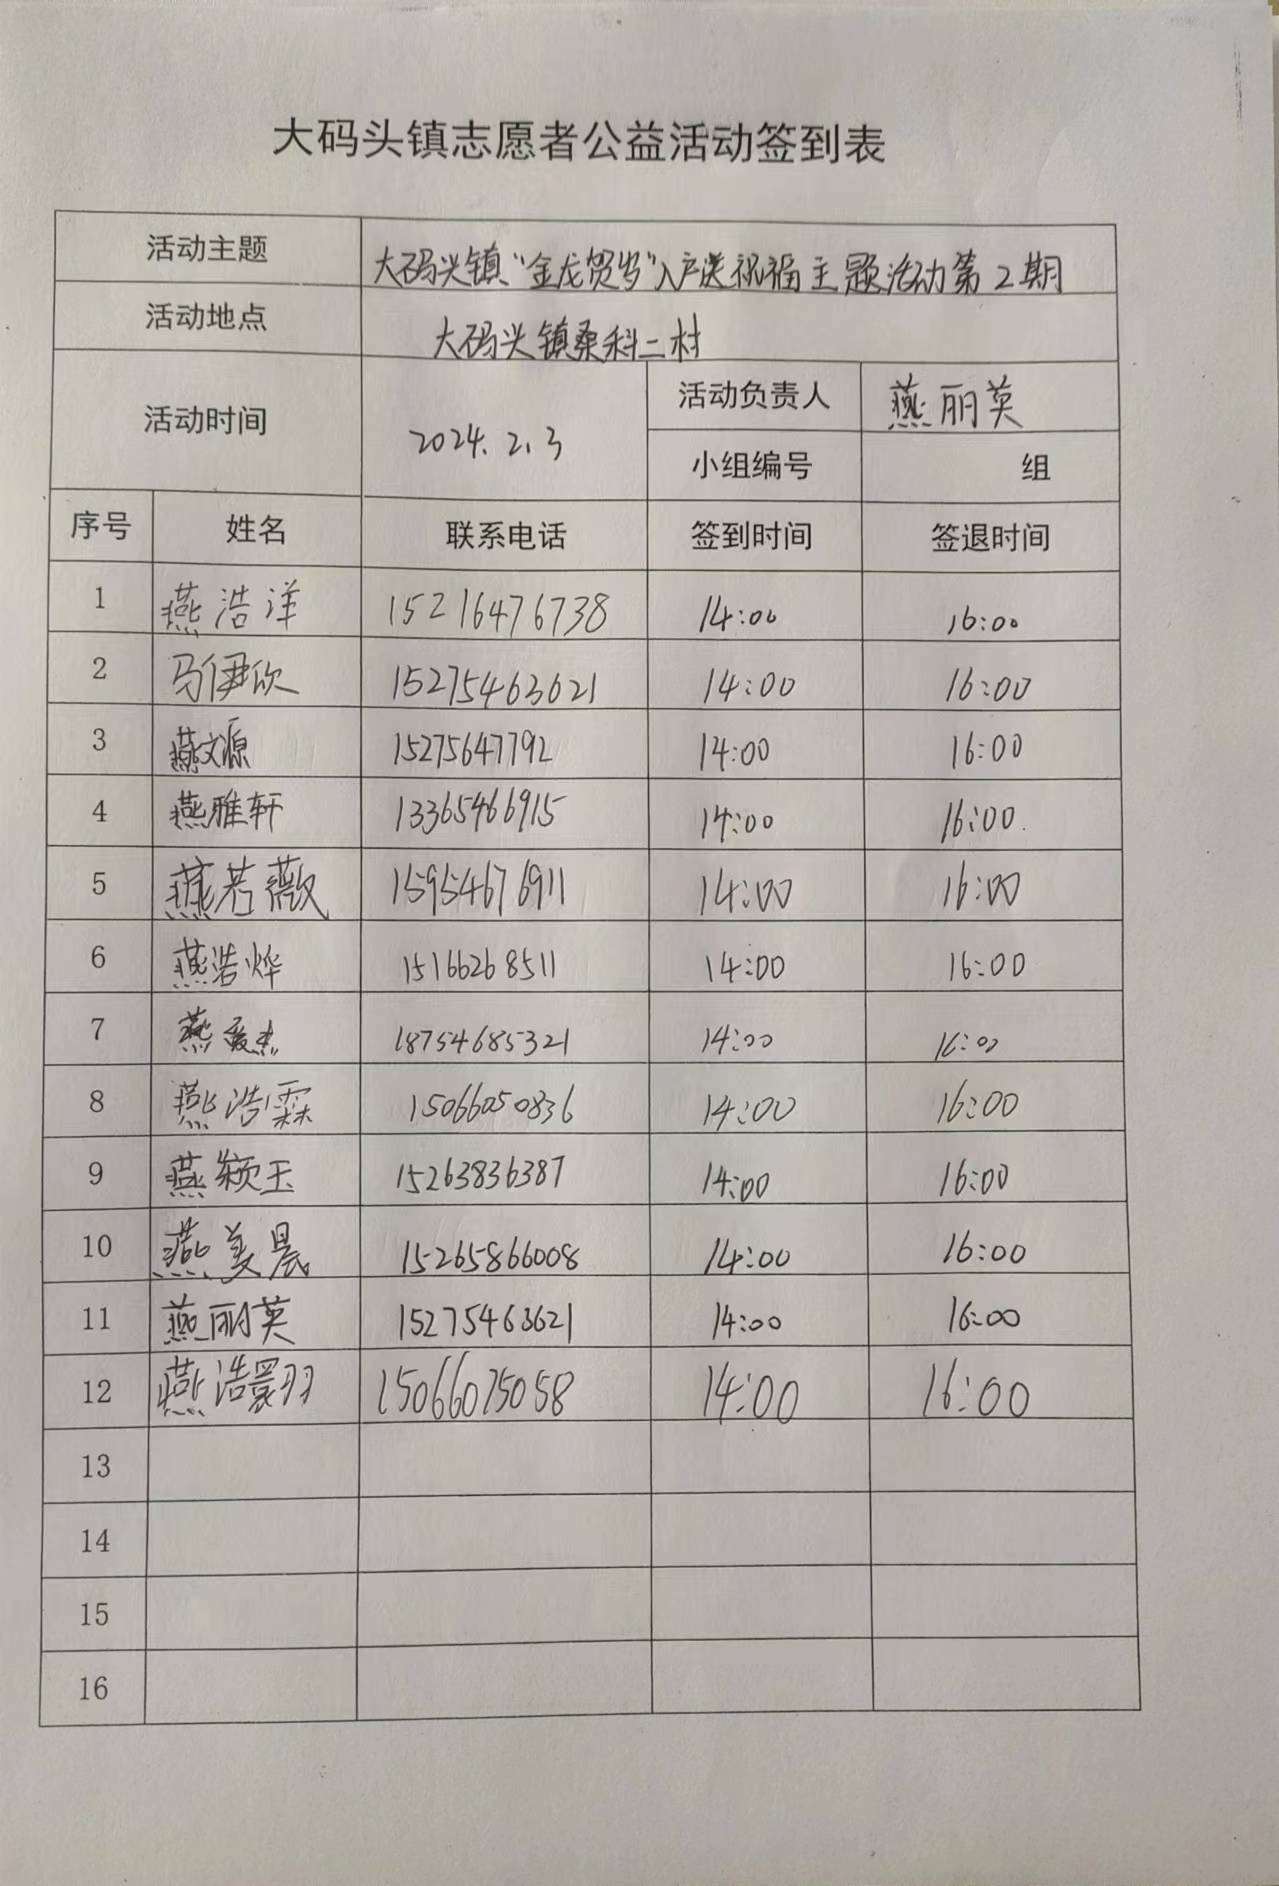 大码头镇志愿者公益活动签到表
活动主题 大码头镇“金龙贺岁”入户送祝福主题活动第2期
活动地点 大码头镇桑科二村
活动时间 2024.2.3 活动负责人 燕丽英
小组编号 组
序号 姓名 联系电话 签到时间 签退时间
1 燕浩洋 15216476738 14:00 16:00
2 马伊欣 15275463621 14:00 16:00
3 燕文源 15275647792 14:00 16:00
4 燕雅轩 13365466915 14:00 16:00
5 燕若薇 15954676911 14:00 16:00
6 燕浩烨 15166268511 14:00 16:00
7 燕爱杰 18754685321 14:00 16:00
8 燕浩霖 15066050836 14:00 16:00
9 燕颖玉 15263836387 14:00 16:00
10 燕美晨 15265866008 14:00 16:00
11 燕丽英 15275463621 14:00 16:00
12 燕浩 15066075058 14:00 16:00
13
14
15
16